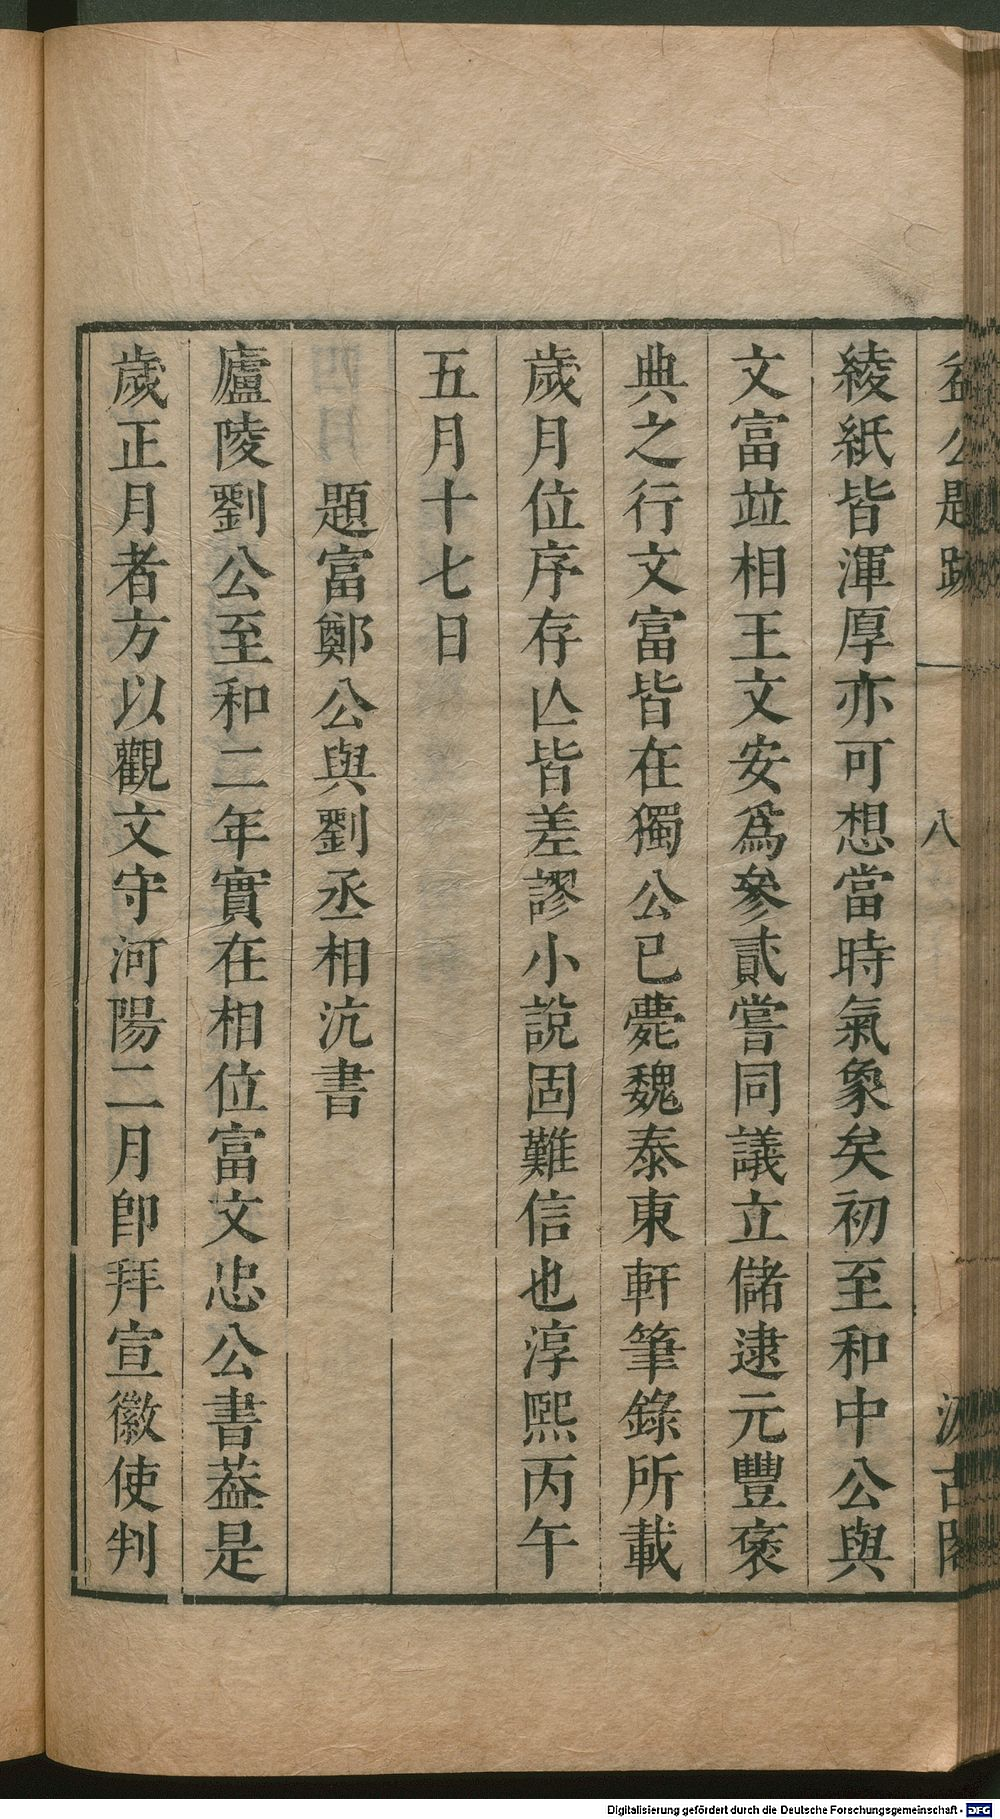 益公題跋 八 汲古閣
綾紙皆渾厚亦可想當時氣象矣初至和中公與
文富竝相王文安爲參貳嘗同議立儲逮元豐褒
典之行文富皆在獨公已薨魏泰東軒筆錄所載
歲月位序存亾皆差謬小說固難信也淳熙丙午
五月十七日
題富鄭公與劉丞相沆書
廬陵劉公至和二年實在相位富文忠公書葢是
歲正月者方以觀文守河陽二月卽拜宣徽使判
Digitalisierung gefördert durch die Deutsche Forschungsgemeinschaft - DFG